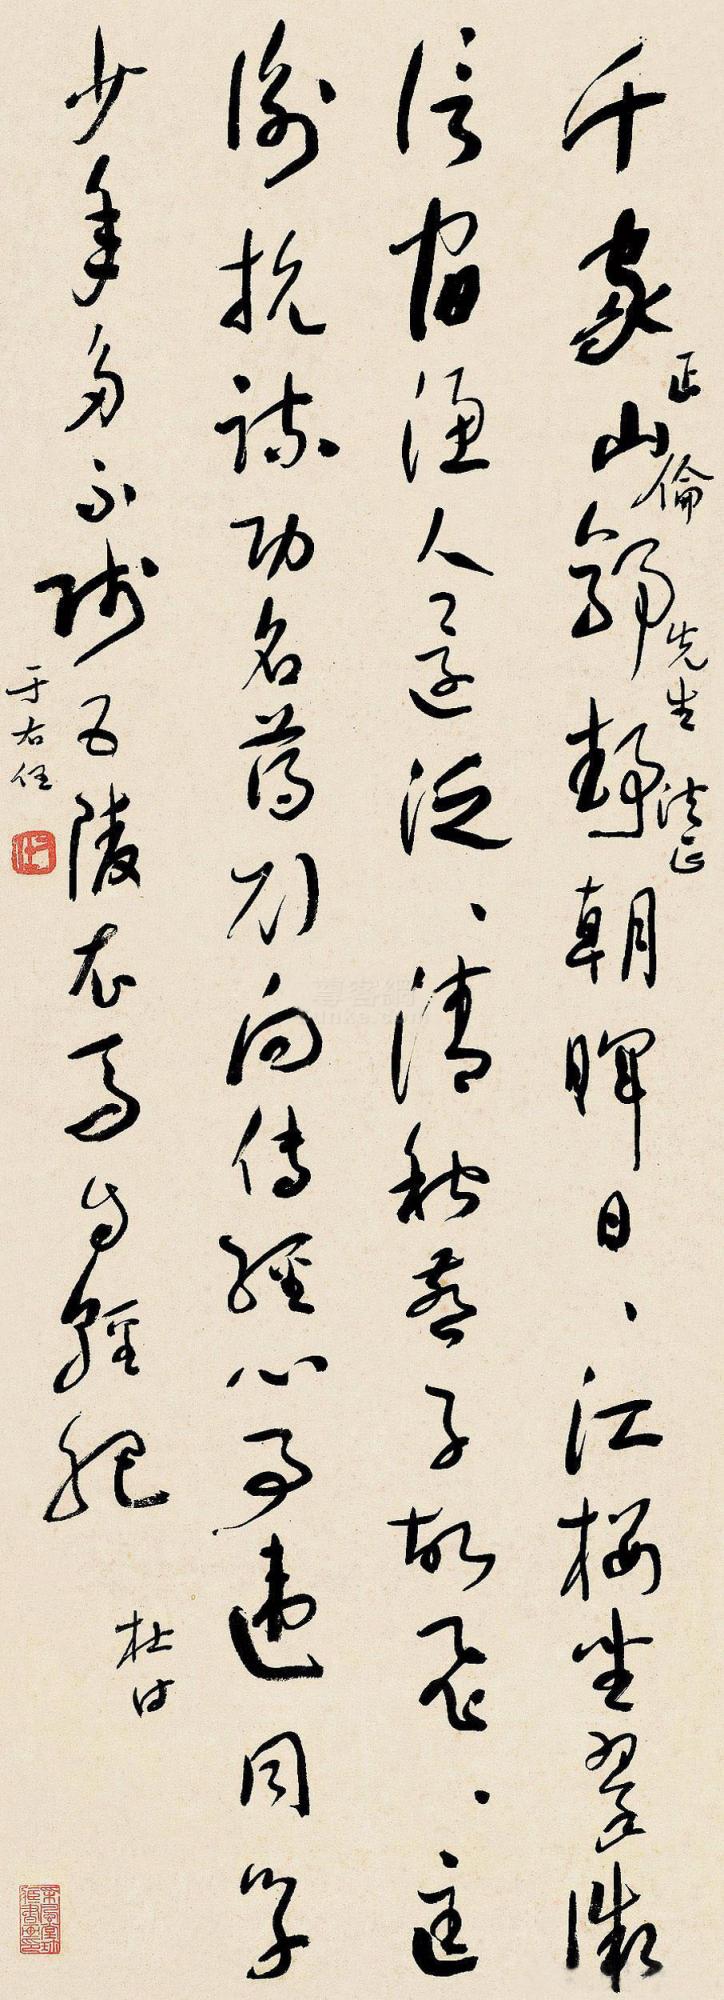 千家山郭静朝晖日、江楼坐翠微
信宿渔人还泛、清秋燕子故飞、匡
衡抗疏功名薄刘向传经心事违同学
少年多不贱五陵衣马自轻肥
杜诗
正倫先生法正
于右任